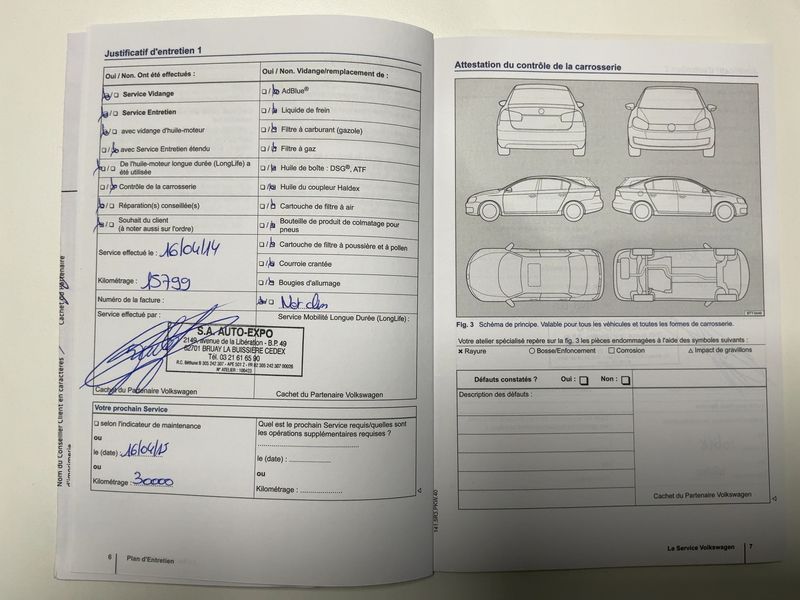 Justificatif d'entretien 1
Oui / Non. Ont été effectués :
Service Vidange
Service Entretien
avec vidange d'huile-moteur
avec Service Entretien étendu
De l'huile-moteur longue durée (LongLife) a
été utilisée
Contrôle de la carrosserie
Réparation(s) conseillée(s)
Souhait du client
(à noter aussi sur l'ordre)
Service effectué le : 16/04/14
Kilométrage : 15799
Numéro de la facture :
Service effectué par :
Oui / Non. Vidange/remplacement de :
AdBlue®
Liquide de frein
Filtre à carburant (gazole)
Filtre à gaz
Huile de boîte : DSG®, ATF
Huile du coupleur Haldex
Cartouche de filtre à air
Bouteille de produit de colmatage pour
pneus
Cartouche de filtre à poussière et à pollen
Courroie crantée
Bougies d'allumage
Service Mobilité Longue Durée (LongLife) :
S.A. AUTO-EXPO
2149, avenue de la Libération - B.P. 49
62701 BRUAY LA BUISSIÈRE CEDEX
Tél. 03 21 61 65 90
Cachet du Partenaire Volkswagen
Cachet du Partenaire Volkswagen
Votre prochain Service
selon l'indicateur de maintenance
ou
le (date) : 16/04/15
ou
Kilométrage : 30000
Quel est le prochain Service requis/quelles sont
les opérations supplémentaires requises ?
le (date) :
ou
Kilométrage :
Nom du Conseiller Client en caractères
d'imprimerie
6 Plan d'Entretien
141.5R3.PKW.40
Attestation du contrôle de la carrosserie
Fig. 3 Schéma de principe. Valable pour tous les véhicules et toutes les formes de carrosserie.
Votre atelier spécialisé repère sur la fig. 3 les pièces endommagées à l'aide des symboles suivants :
× Rayure ○ Bosse/Enfoncement □ Corrosion △ Impact de gravillons
Défauts constatés ? Oui : Non :
Description des défauts :
Cachet du Partenaire Volkswagen
Le Service Volkswagen 7